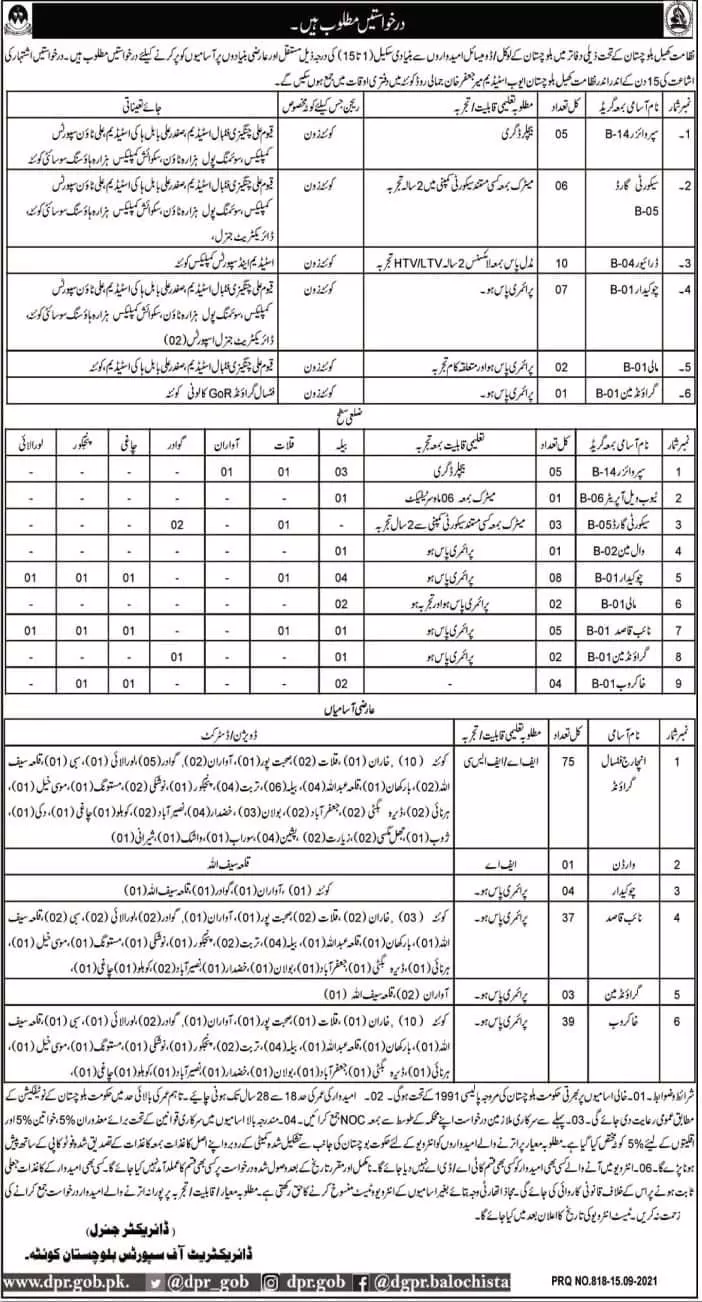 درخواستیں مطلوب ہیں۔
نظامت کھیل بلوچستان کے تحت ذیلی دفاتر میں بلوچستان کے لوکل/ڈومیسائل امیدواروں سے بنیادی سکیل (1 تا 15) کی درجہ ذیل مستقل اور عارضی بنیادوں پر آسامیوں کو پر کرنے کیلئے درخواستیں مطلوب ہیں۔ درخواستیں اشتہار کی
اشاعت کی 15 دن کے اندر اندر نظامت کھیل بلوچستان ایوب اسٹیڈیم میر جعفر خان جمالی روڈ کوئٹہ میں دفتری اوقات میں جمع ہوسکیں گے۔
نمبر شمار نام آسامی بمعہ گریڈ کل تعداد مطلوبہ تعلیمی قابلیت/تجربہ ریجن جس کیلئے کوٹہ مخصوص جائے تعیناتی
1۔ سپروائزر B-14 05 بیچلر ڈگری کوئٹہ زون قیوم علی چنگیزی فٹبال اسٹیڈیم، صفدر علی بابل ہاکی اسٹیڈیم، علی ٹاؤن سپورٹس
کمپلیکس، سوئمنگ پول ہزارہ ٹاؤن، سکواش کمپلیکس ہزارہ ہاؤسنگ سوسائٹی کوئٹہ
2۔ سیکورٹی گارڈ B-05 06 میٹرک بمعہ کسی مستند سیکورٹی کمپنی میں 2 سالہ تجربہ کوئٹہ زون قیوم علی چنگیزی فٹبال اسٹیڈیم، صفدر علی بابل ہاکی اسٹیڈیم، علی ٹاؤن سپورٹس
کمپلیکس، سوئمنگ پول ہزارہ ٹاؤن، سکواش کمپلیکس ہزارہ ہاؤسنگ سوسائٹی کوئٹہ،
ڈائریکٹریٹ جنرل،
3۔ ڈرائیور B-04 10 مڈل پاس بمعہ لائسنس 2 سالہ HTV/LTV تجربہ کوئٹہ زون اسٹیڈیم اینڈ سپورٹس کمپلیکس کوئٹہ
4۔ چوکیدار B-01 07 پرائمری پاس ہو۔ کوئٹہ زون قیوم علی چنگیزی فٹبال اسٹیڈیم، صفدر علی بابل ہاکی اسٹیڈیم، علی ٹاؤن سپورٹس
کمپلیکس، سوئمنگ پول ہزارہ ٹاؤن، سکواش کمپلیکس ہزارہ ہاؤسنگ سوسائٹی کوئٹہ،
ڈائریکٹریٹ جنرل اسپورٹس (02)
5۔ مالی B-01 02 پرائمری پاس ہو اور متعلقہ کام تجربہ کوئٹہ زون قیوم علی چنگیزی فٹبال اسٹیڈیم، صفدر علی بابل ہاکی اسٹیڈیم، کوئٹہ
6۔ گراؤنڈ مین B-01 01 پرائمری پاس ہو۔ کوئٹہ زون فٹسال گراؤنڈ GoR کالونی کوئٹہ
ضلعی سطح
نمبر شمار نام آسامی بمعہ گریڈ کل تعداد تعلیمی قابلیت بمعہ تجربہ بیلہ قلات آواران گوادر چاغی پنجگور لورالائی
1 سپروائزر B-14 05 بیچلر ڈگری 03 01 01 - - - -
2 ٹیوب ویل آپریٹر B-06 01 میٹرک بمعہ 06 ماہ سرٹیفکیٹ 01 - - - - - -
3 سیکورٹی گارڈ B-05 03 میٹرک بمعہ کسی مستند سیکورٹی کمپنی سے 2 سال تجربہ - 01 - 02 - - -
4 وال مین B-02 01 پرائمری پاس ہو 01 - - - - - -
5 چوکیدار B-01 08 پرائمری پاس ہو 04 01 - - 01 01 01
6 مالی B-01 02 پرائمری پاس ہو اور تجربہ ہو 02 - - - - - -
7 نائب قاصد B-01 05 پرائمری پاس ہو 01 01 - - 01 01 01
8 گراؤنڈ مین B-01 02 پرائمری پاس ہو 01 - - 01 - - -
9 خاکروب B-01 04 - 02 - - - 01 01 -
عارضی آسامیاں
نمبر شمار نام آسامی کل تعداد مطلوبہ تعلیمی قابلیت/تجربہ ڈویژن/ڈسٹرکٹ
1 انچارج فٹسال گراؤنڈ 75 ایف اے/ایف ایس سی کوئٹہ (10)، خاران (01)، قلات (02) صحبت پور (01)، آواران (02)، گوادر (05) لورالائی (01)، سبی (01)، قلعہ سیف
اللہ (02)، بارکھان (01)، قلعہ عبداللہ (04)، بیلہ (06)، تربت (04)، پنجگور (01)، نوشکی (02)، مستونگ (01)، موسیٰ خیل (01)،
ہرنائی (02)، ڈیرہ بگٹی (02)، جعفرآباد (02)، بولان (03)، خضدار (04)، نصیرآباد (02)، کوہلو (01) چاغی (01)، دکی (01)،
ژوب (01)، جھل مگسی (02)، زیارت (02)، پشین (04)، سوراب (01)، واشک (01)، شیرانی (01)
2 وارڈن 01 ایف اے قلعہ سیف اللہ
3 چوکیدار 04 پرائمری پاس ہو۔ کوئٹہ (01)، آواران (01)، گوادر (01)، قلعہ سیف اللہ (01)
4 نائب قاصد 37 پرائمری پاس ہو۔ کوئٹہ (03)، خاران (02)، قلات (02) صحبت پور (01)، آواران (01)، گوادر (02)، لورالائی (02)، سبی (02)، قلعہ سیف
اللہ (01)، بارکھان (01)، قلعہ عبداللہ (01)، بیلہ (04)، تربت (02)، پنجگور (01)، نوشکی (01)، مستونگ (01)، موسیٰ خیل (01)،
ہرنائی (01)، ڈیرہ بگٹی (01) جعفرآباد (01)، بولان (01)، خضدار (01) نصیرآباد (02)، کوہلو (01) چاغی (01)،
5 گراؤنڈ مین 03 پرائمری پاس ہو۔ آواران (02)، قلعہ سیف اللہ (01)
6 خاکروب 39 پرائمری پاس ہو۔ کوئٹہ (10)، خاران (01)، قلات (01) صحبت پور (01)، آواران (01)، گوادر (02)، لورالائی (01)، سبی (01)، قلعہ سیف
اللہ (01)، بارکھان (01)، قلعہ عبداللہ (01)، بیلہ (04)، تربت (02)، پنجگور (01)، نوشکی (01)، مستونگ (01)، موسیٰ خیل (01)،
ہرنائی (01)، ڈیرہ بگٹی (01) جعفرآباد (01)، بولان (01)، خضدار (01) نصیرآباد (01)، کوہلو (01) چاغی (01)،
شرائط و ضوابط ۔ 01۔ خالی اسامیوں پر بھرتی حکومت بلوچستان کی مروجہ پالیسی 1991 کے تحت ہوگی۔ 02۔ امیدوار کی عمر کی حد 18 سے 28 سال تک ہونی چاہیے۔ تاہم عمر کی بالائی حد میں حکومت بلوچستان کے نوٹیفکیشن کے
مطابق عمومی رعایت دی جائے گی۔ 03۔ پہلے سے سرکاری ملازمین درخواست اپنے محکمہ کے طوسط سے بمعہ NOC جمع کرائیں۔ 04۔ مندرجہ بالا اسامیوں میں سرکاری قوانین کے تحت برائے معذوران 5%، خواتین 5% اور
اقلیتوں کے لئے 5% کوٹہ مختص کیا گیا ہے۔ مطلوبہ معیار پر اترنے والے امیدواروں کو انٹرویو کے لئے حکومت بلوچستان کی جانب سے تشکیل شدہ کمیٹی کے روبرو اپنے اصل کاغذات بمعہ کاغذات کے تصدیق شدہ فوٹو کاپی کے ساتھ پیش
ہونا پڑے گا۔ 06۔ انٹرویو میں آنے والے کسی بھی امیدوار کو کسی بھی قسم کا ٹی اے/ڈی اے نہیں دیا جائے گا۔ نامکمل اور مقررہ تاریخ کے بعد وصول شدہ درخواست پر کسی بھی قسم کا عملدرآمد نہیں کیا جائے گا۔ کسی بھی امیدوار کے کاغذات جعلی
ثابت ہونے پر اس کے خلاف قانونی کاروائی کی جائے گی۔ مجاز اتھارٹی وجہ بتائے بغیر اسامیوں کے انٹرویو و ٹیسٹ منسوخ کرنے کا حق رکھتی ہے۔ مطلوبہ معیار/قابلیت/تجربہ پر پورا نہ اترنے والے امیدوار درخواست جمع کرانے کی
زحمت نہ کریں۔ ٹیسٹ انٹرویو کی تاریخ کا اعلان بعد میں کیا جائے گا۔
(ڈائریکٹر جنرل)
ڈائریکٹریٹ آف سپورٹس بلوچستان کوئٹہ۔
www.dpr.gob.pk. @dpr_gob dpr.gob @dgpr.balochista
PRQ NO.818-15.09-2021